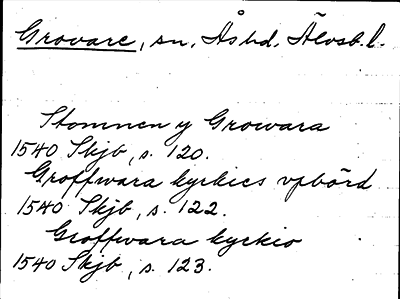 Grovare, sn, Ås hd, Älvsb. l.
Stomnen y Growara
1540 Skjb, s. 120.
Groffwara kyrkies vpbörd
1540 Skjb, s. 122.
Groffwara kyrkio
1540 Skjb, s. 123.